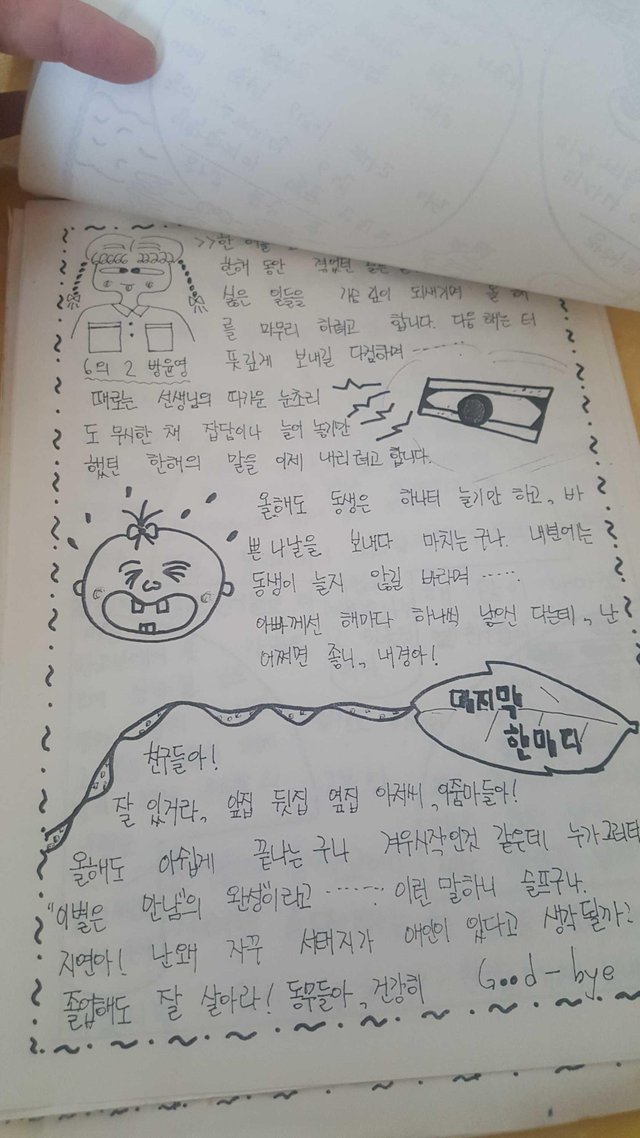 >>한
한해 동안 겪었던
싶은 일들을 되새기며 올 해
를 마무리 하려고 합니다. 다음 해는 더
뜻깊게 보내길 다짐하며 ……
6의 2 방윤영
때로는 선생님의 따가운 눈초리
도 무시한 채 잡담이나 늘어 놓기만
했던 한해의 말을 이제 내리려고 합니다.
올해도 동생은 하나더 늘기만 하고, 바
쁜 나날을 보내다 마치는구나. 내년에는
동생이 늘지 않길 바라며 ……
아빠께선 해마다 하나씩 낳으신 다는데, 난
어쩌면 좋니, 내경아!
마지막
한마디
친구들아!
잘 있거라, 앞집 뒷집 옆집 아저씨, 아줌마들아!
올해도 아쉽게 끝나는구나 겨우시작인것 같은데 누가그러데
"이별은 만남"의 완성"이라고 …… 이런 말하니 슬프구나.
지연아! 난왜 자꾸 서태지가 애인이 있다고 생각될까?
졸업해도 잘 살아라! 동무들아, 건강히 Good-bye